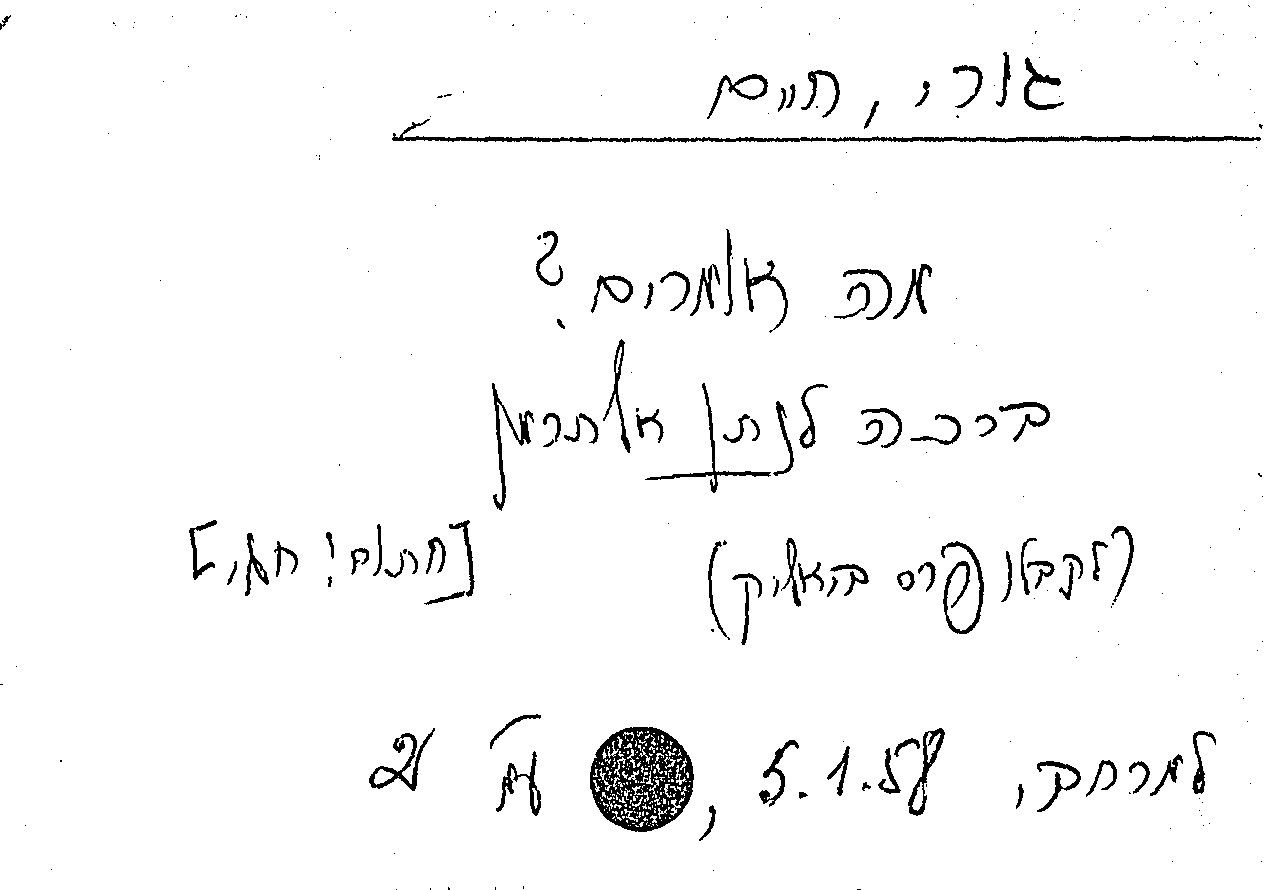 גורי, חיים
מה אומרים?
ברכה לנתן אלתרמן
(לקבלו פרס ביאליק) [חתום! חג.]
למרחב, 5.1.58, עמ'